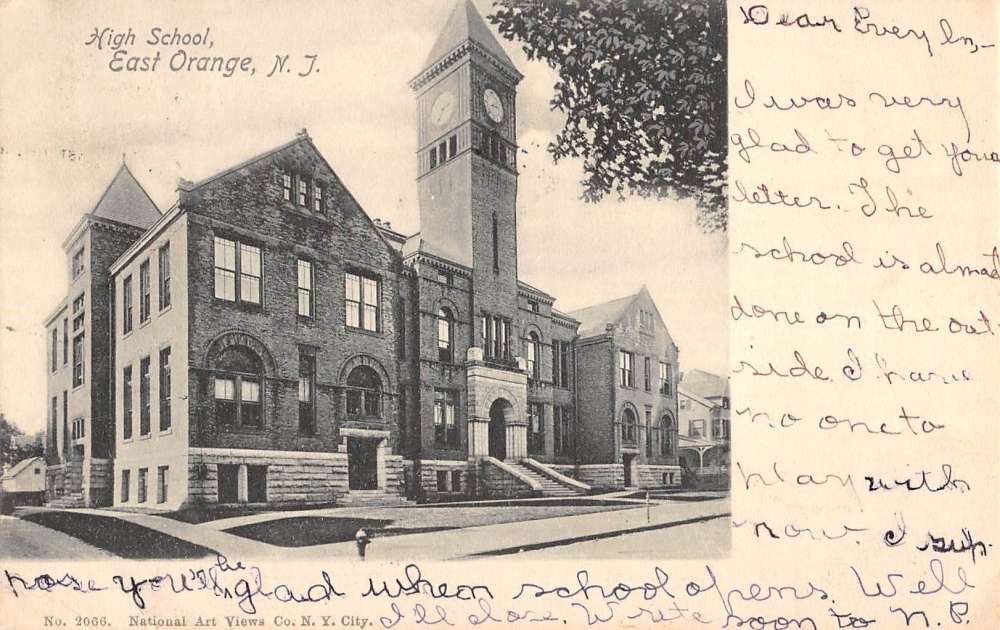 High School,
East Orange, N. J.
Dear Evey In,
I was very
glad to get your
letter. The
school is almost
done on the out
side. I have
no one to
play with
now. I sup-
pose you'll be glad when school opens. Well
I'll close. Write soon to N. P.
No. 2066. National Art Views Co. N. Y. City.